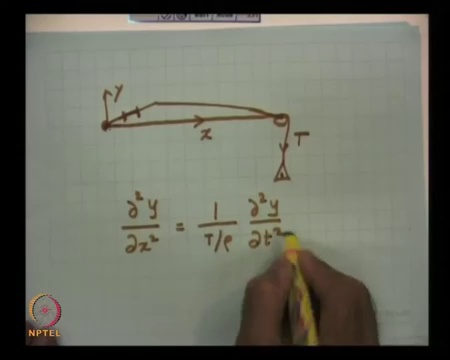 y
x
T
∂²y/∂x² = 1/(T/ρ) ∂²y/∂t²
NPTEL